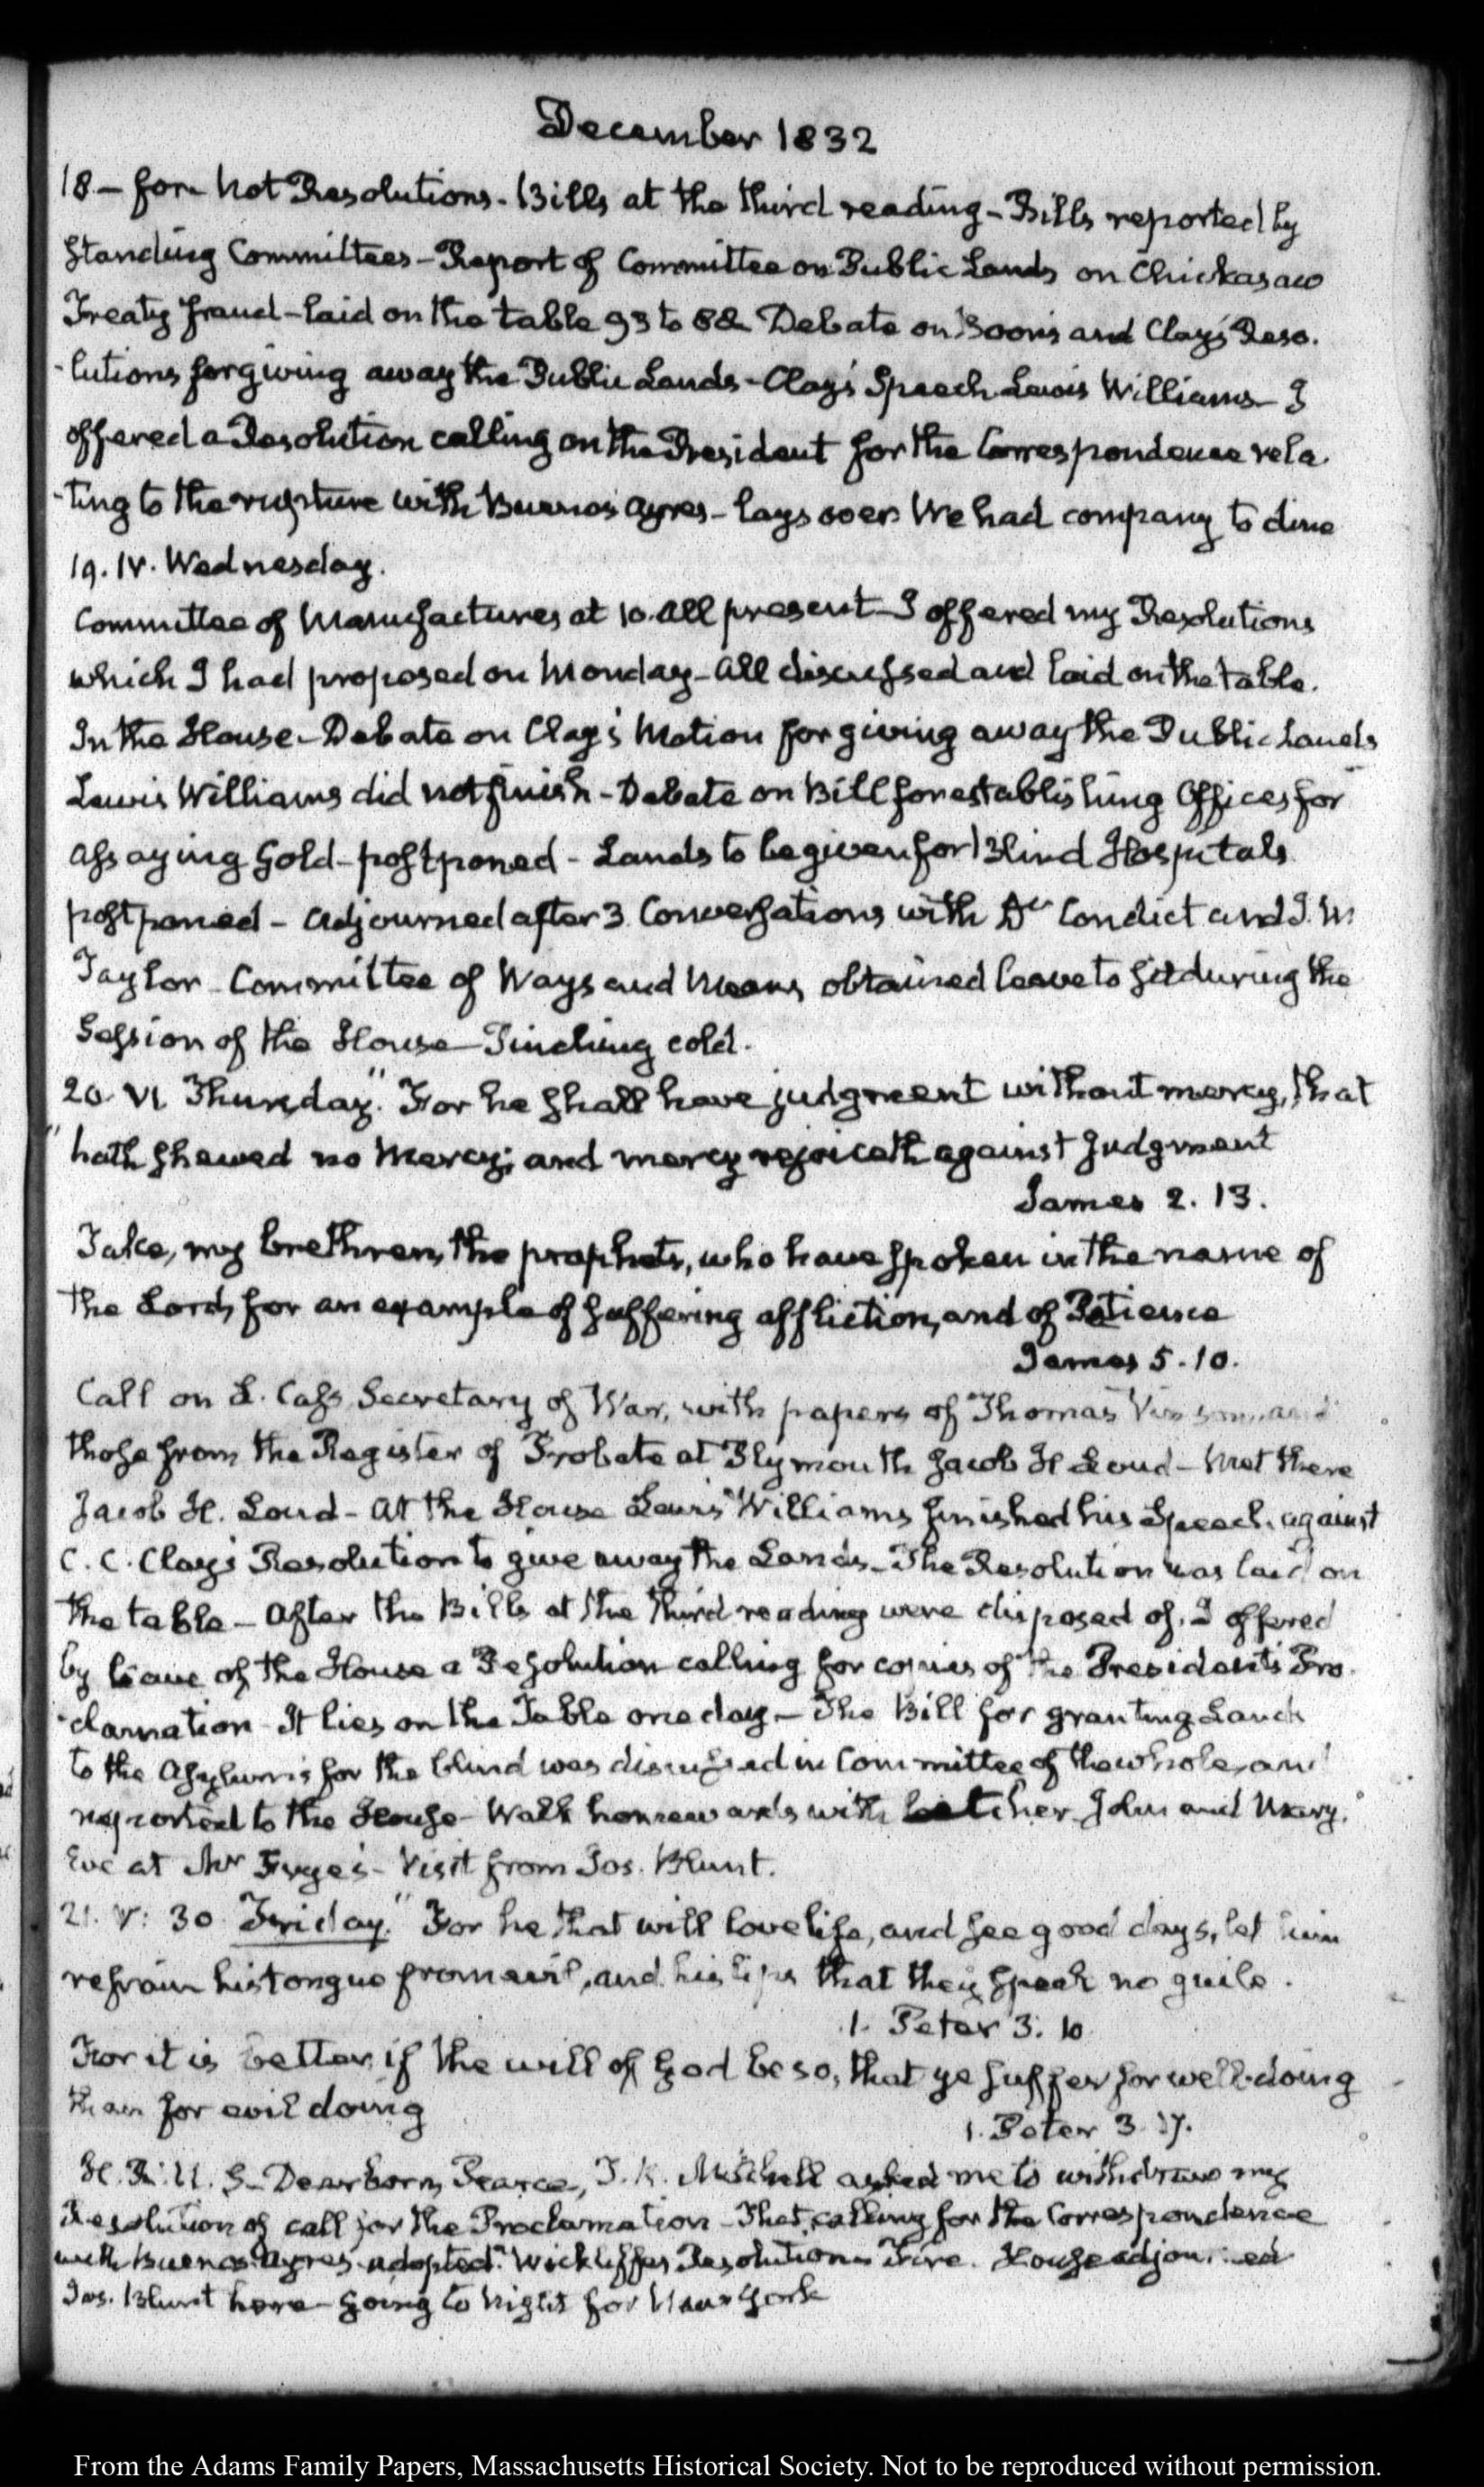 December 1832
18 – for Hot Resolutions. Bills at the third reading – Bills reported by
Standing Committees – Report of Committee on Public Lands on Chickasaw
Treaty fraud – laid on the table 93 to 88 Debate on Boon's and Clay's Reso.
-lutions for giving away the Public Lands – Clay's Speech Lewis Williams – I
offered a Resolution calling on the President for the Correspondence rela.
-ting to the rupture with Buenos Ayres – lays over We had company to dine
19. IV. Wednesday.
Committee of Manufactures at 10. All present – I offered my Resolutions
which I had proposed on Monday – All discussed and laid on the table.
In the House – Debate on Clay's Motion for giving away the Public Lands
Lewis Williams did not finish – Debate on Bill for establishing Offices for
assaying Gold – postponed – Lands to be given for Blind Hospitals
postponed – Adjourned after 3 Conversations with Dr Condict and J. W
Taylor – Committee of Ways and Means obtained leave to sit during the
Session of the House – Pinching cold.
20. VI. Thursday. "For he shall have judgment without mercy, that
"hath shewed no Mercy; and mercy rejoiceth against Judgment
James 2. 13.
Take, my brethren, the prophets, who have spoken in the name of
the Lord, for an example of suffering affliction, and of Patience
James 5. 10.
Call on L. Cass Secretary of War, with papers of Thomas Vinson, and
those from the Register of Probate at Plymouth Jacob H Loud – Met there
Jacob H. Loud – At the House Lewis Williams finished his Speech against
C. C. Clay's Resolution to give away the Lands – The Resolution was laid on
the table – After the Bills at the third reading were disposed of, I offered
by leave of the House a Resolution calling for copies of the President's Pro.
-clamation – It lies on the Table one day – The Bill for granting Lands
to the Asylums for the blind was discussed in Committee of the whole, and
reported to the House – Walk homewards with Letcher – John and Mary.
Eve at Mr Frye's – Visit from Jos. Blunt.
21. V: 30 Friday. "For he that will love life, and see good days, let him
refrain his tongue from evil, and his lips that they speak no guile.
1. Peter 3. 10
For it is better, if the will of God be so, that ye suffer for well-doing
than for evil doing
1. Peter 3. 17.
H. R. U. S – Dearborn, Pearce, T. R. Mitchell asked me to withdraw my
Resolution of call for the Proclamation – That calling for the Correspondence
with Buenos Ayres adopted. Wickliffe's Resolution – Fire. House adjourned
Jos. Blunt here – going to night for New York
From the Adams Family Papers, Massachusetts Historical Society. Not to be reproduced without permission.